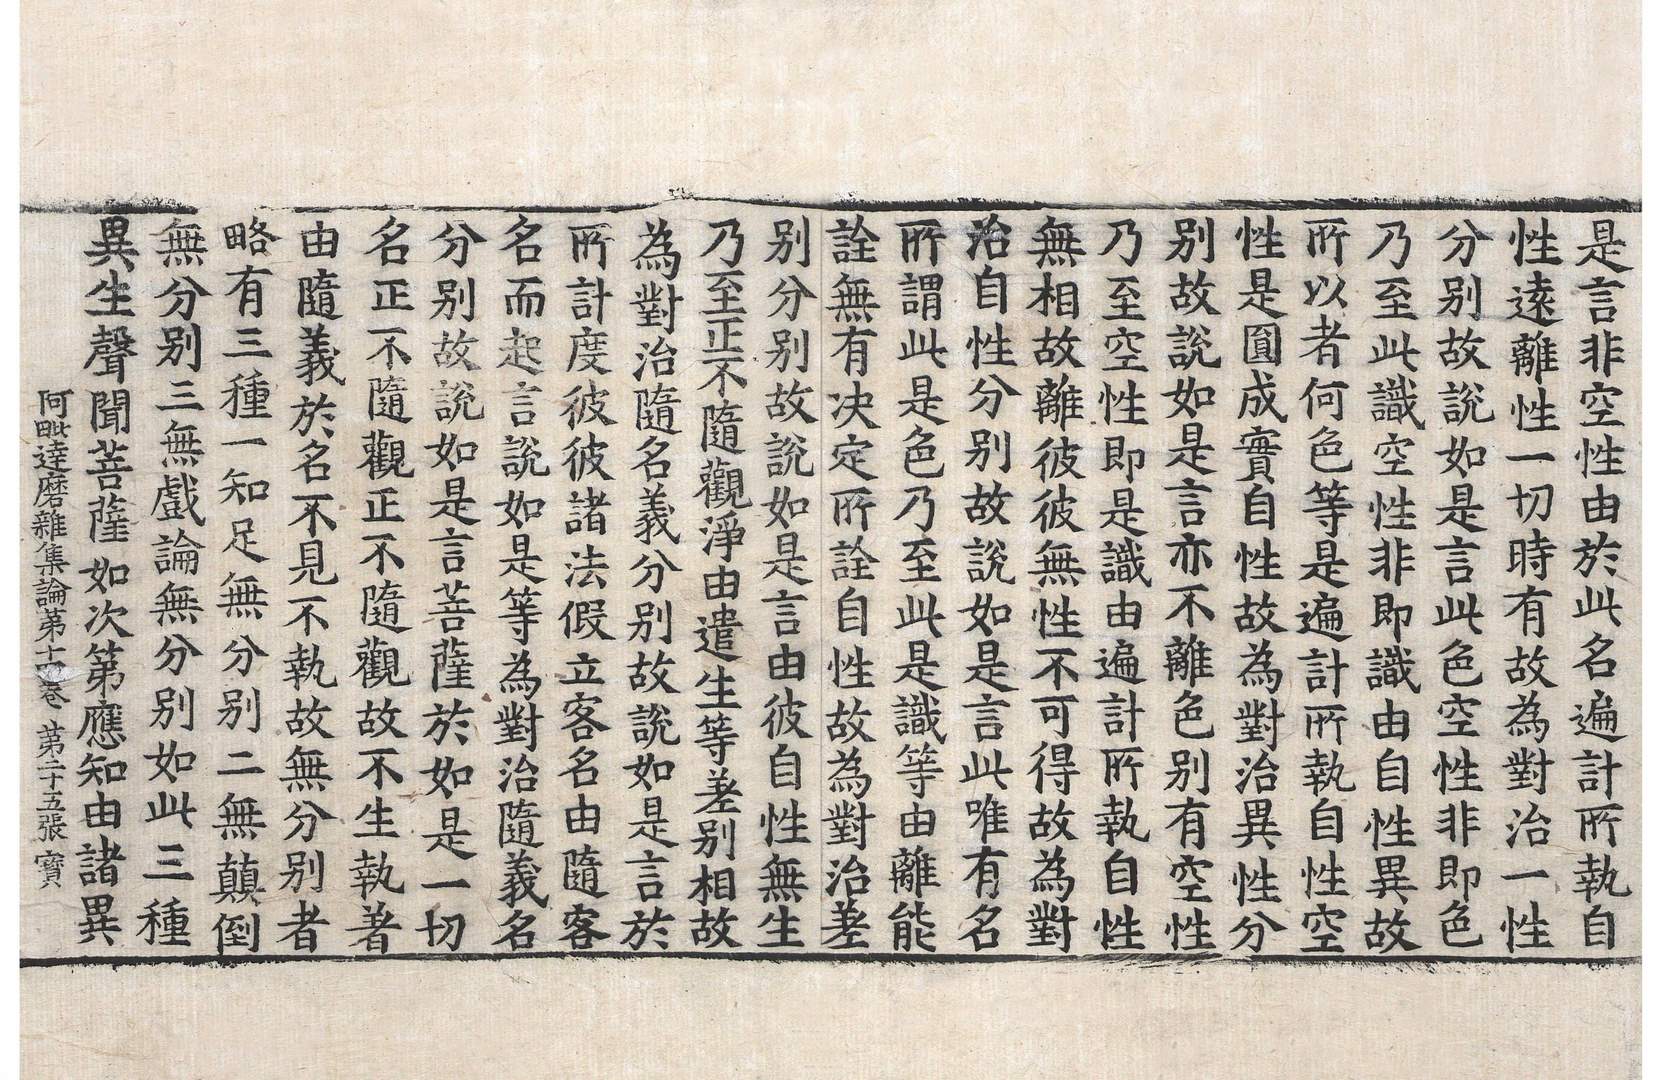 是言非空性由於此名遍計所執自
性遠離性一切時有故為對治一性
分別故說如是言此色空性非即色
乃至此識空性非即識由自性異故
所以者何色等是遍計所執自性空
性是圓成實自性故為對治異性分
別故說如是言亦不離色別有空性
乃至空性即是識由遍計所執自性
無相故離彼彼無性不可得故為對
治自性分別故說如是言此唯有名
所謂此是色乃至此是識等由離能
詮無有决定所詮自性故為對治差
別分別故說如是言由彼自性無生
乃至正不隨觀淨由遣生等差別相故
為對治隨名義分別故說如是言於
所計度彼彼諸法假立客名由隨客
名而起言說如是等為對治隨義名
分別故說如是言菩薩於如是一切
名正不隨觀正不隨觀故不生執著
由隨義於名不見不執故無分別者
略有三種一知足無分別二無顛倒
無分別三無戲論無分別如此三種
異生聲聞菩薩如次第應知由諸異
阿毗達磨雜集論第十四卷 第二十五張 寶